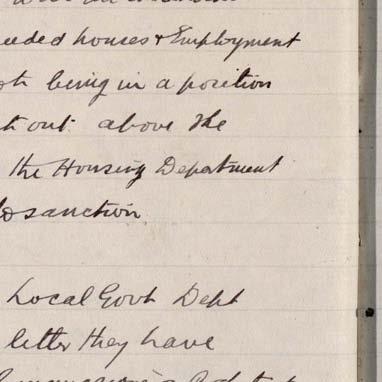 eeded houses & Employment
being in a position
out above the
the Housing Department
sanction
Local Govt Dept
letter they have